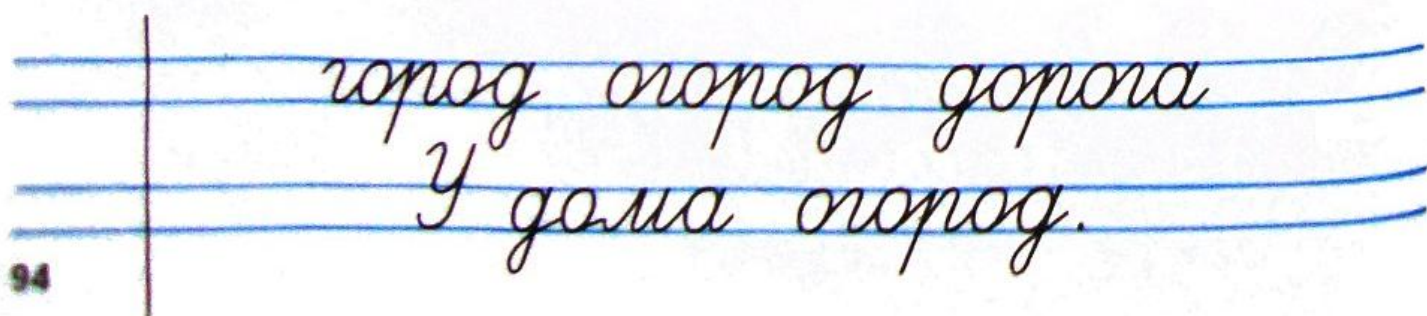 город огород дорога
У дома огород.
94